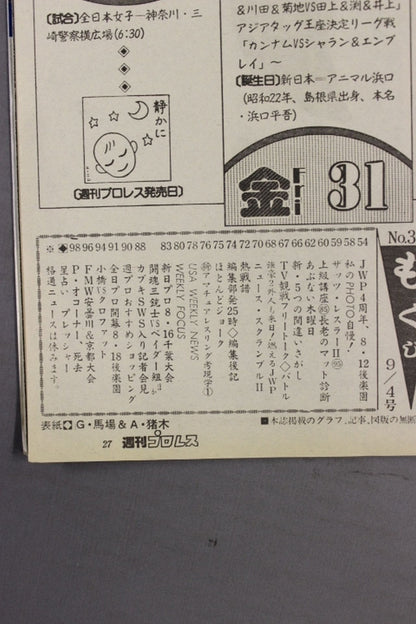 〔試合〕全日本女子ー神奈川・三
崎警察横広場(6:30)
静かに
〔週刊プロレス発売日〕
&川田&菊地VS田上&渕&井上」
アジアタッグ王座決定リーグ戦
「カンナムVSシャラン&エンブ
レイ」〜
〔誕生日〕新日本=アニマル浜口
(昭和22年、島根県出身、本名
・浜口平吾)
金 Fri 31
No.3
もくじ
9/4号
54 JWP4周年、8・12後楽園
58 私のPHOTO自慢!
59 ザッツ・レスラーⅡ㊟
60 上級講座 長老のマット診断
62 あぶない木曜日
66 新・5つの間違いさがし
67 TV観戦フリートーク◇バトル
68 強豪2外人も来日!燃えるJWP
70 ニュース・スクランブルⅡ
72 熱戦譜
74 編集部発25時◇編集後記
75 ほとんどジョーク
76 アマチュアレスリング考現学①
78 USA WEEKLY NEWS
79 WEEKLY FOCUS
80 新日プロ8・16千葉大会
83 闘魂三銃士VSベイダー組
88 カブキがSWS入り記者会見
90 週プロおすすめショッピング
91 全日プロ開幕8・18後楽園
94 小橋VSクロファット
96 FMW安曇川&京都大会
98 P・オコーナー、死去
◆ 星占い・プレッシャー
※ 格通ニュースは休みます。
表紙◆G・馬場&A・猪木
■本誌掲載のグラフ、記事、図版の無断
27 週刊プロレス